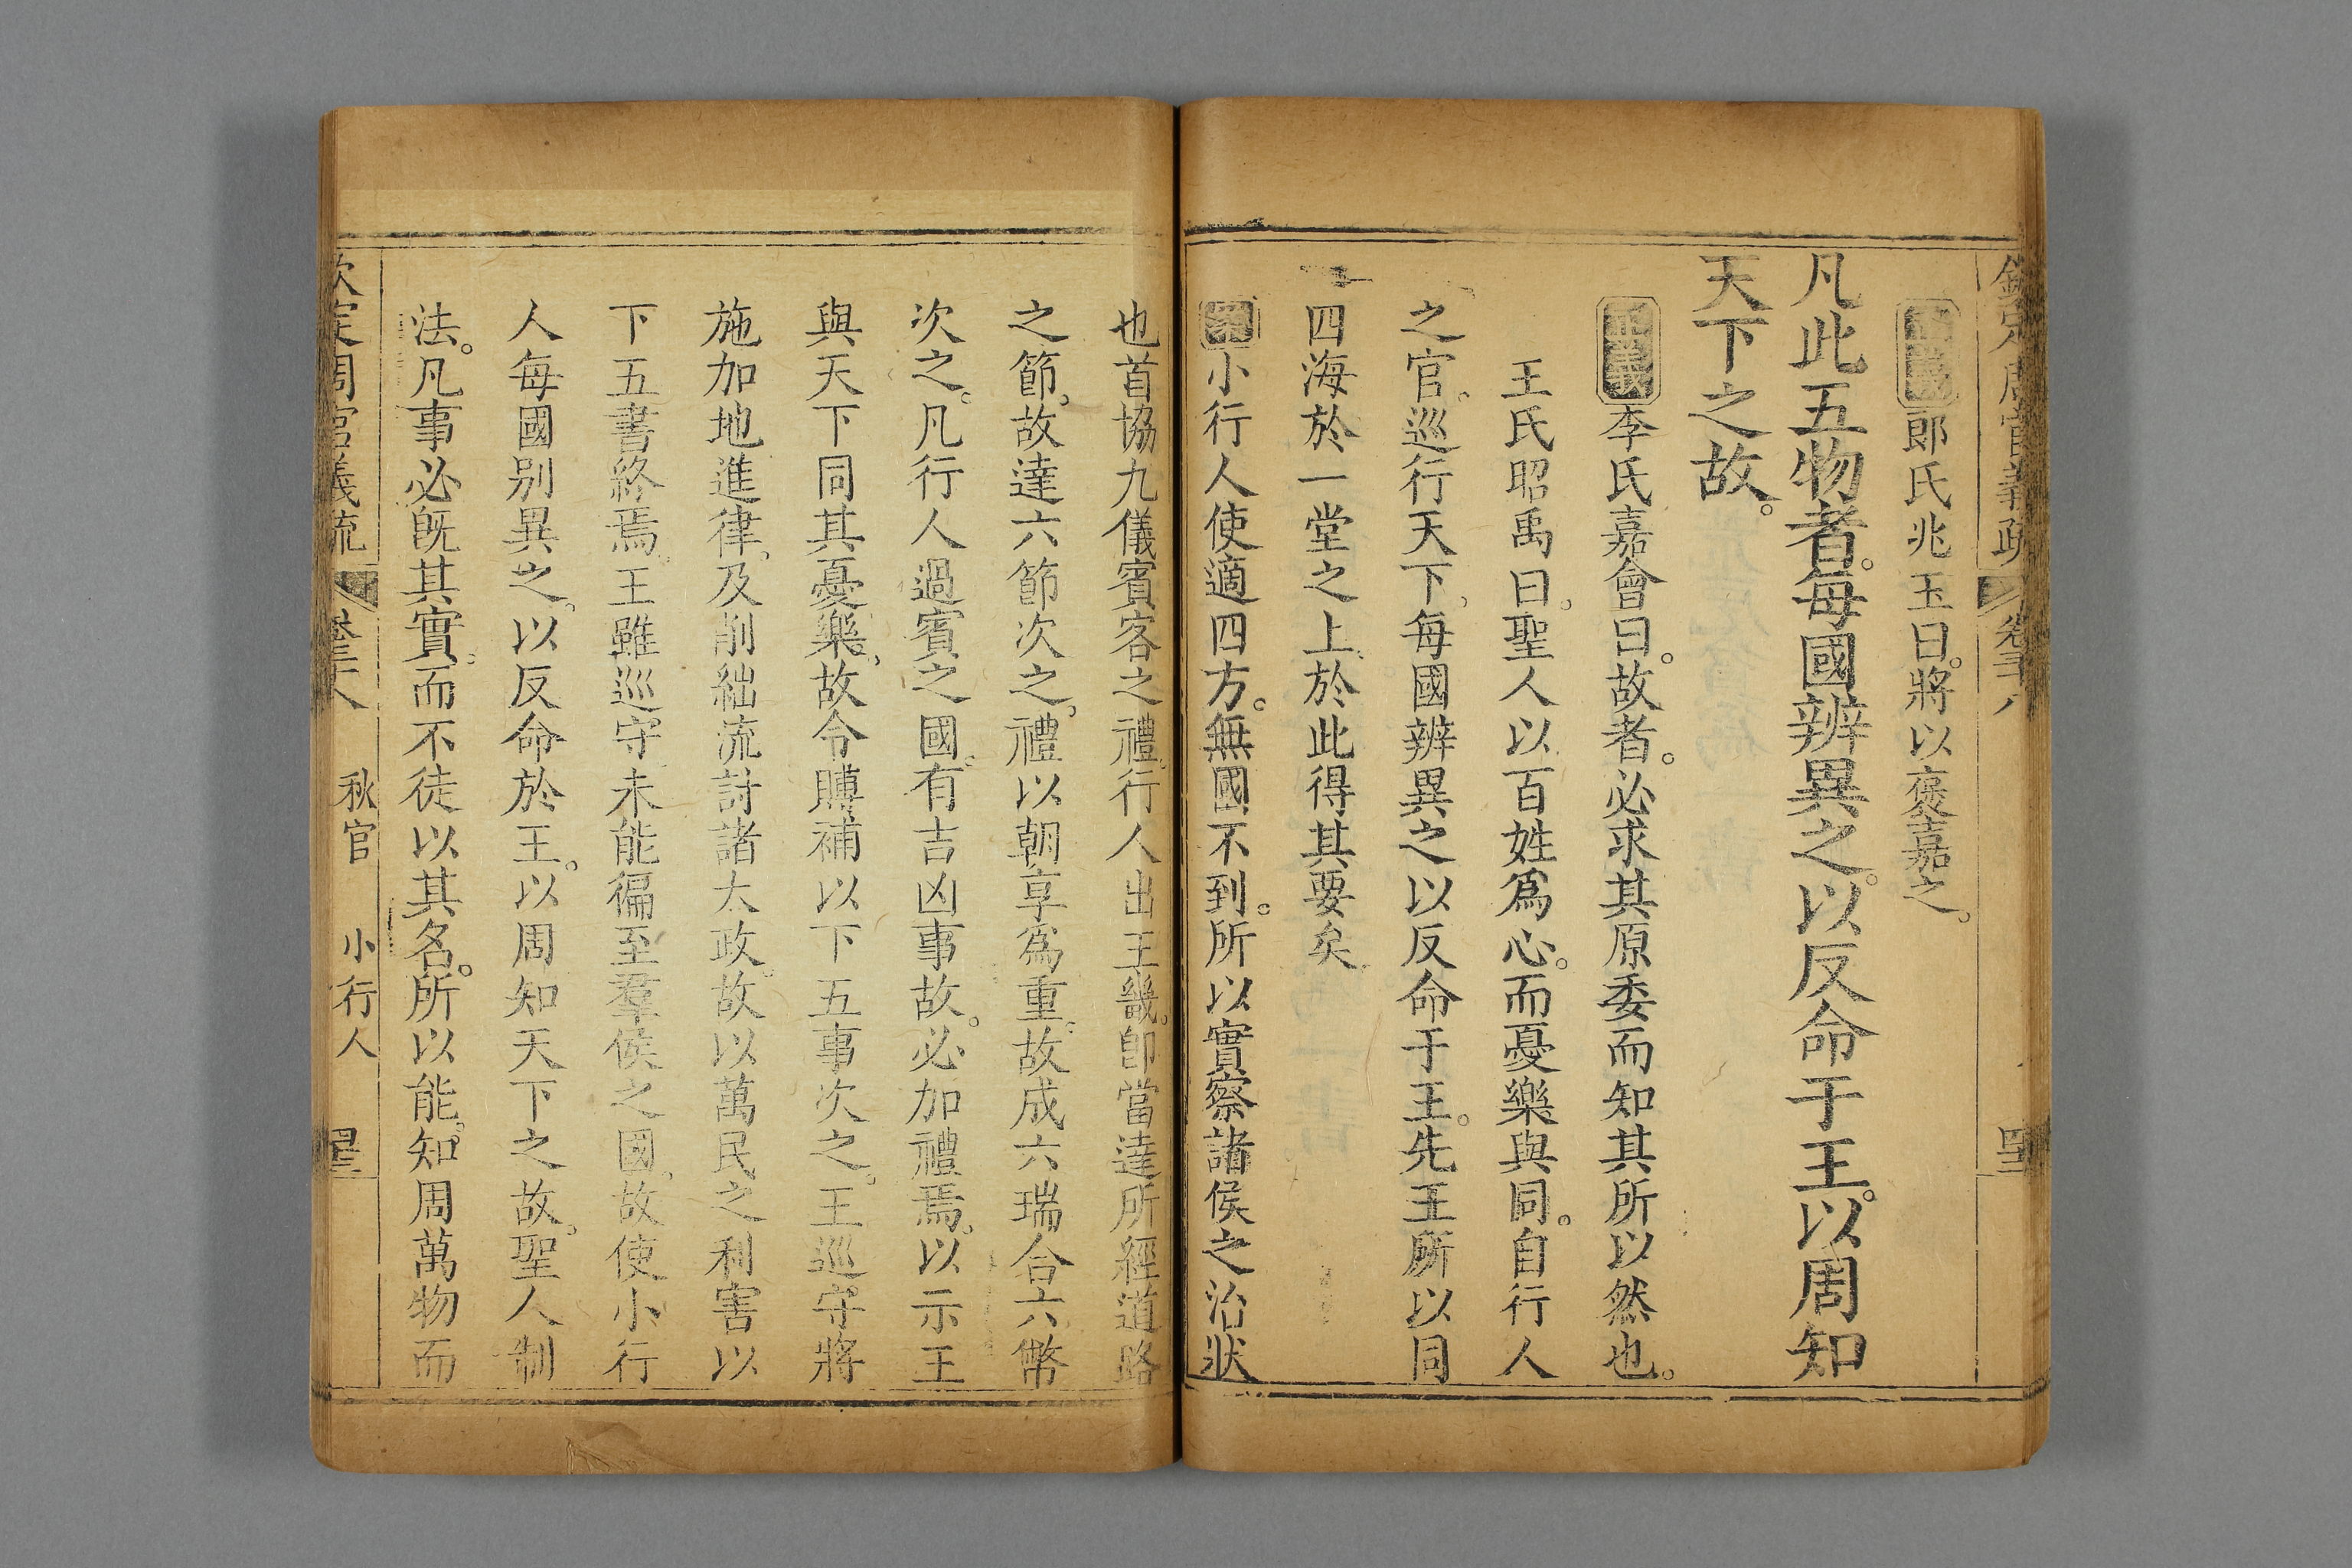 欽定周官義疏 卷三十八 四十二
正義郎氏兆玉曰。將以褒嘉之。
凡此五物者。每國辨異之。以反命于王。以周知
天下之故。
正義李氏嘉會曰。故者。必求其原委而知其所以然也。
王氏昭禹曰。聖人以百姓爲心。而憂樂與同。自行人
之官。巡行天下。每國辨異之以反命于王。先王所以同
四海於一堂之上。於此得其要矣
案小行人使適四方。無國不到。所以實察諸侯之治狀
也首協九儀賓客之禮。行人出王畿。卽當達所經道路
之節。故達六節次之。禮以朝享爲重。故成六瑞合六幣
次之。凡行人過賓之國。有吉凶事故。必加禮焉。以示王
與天下同其憂樂。故令賻補以下五事次之。王巡守將
施加地進律。及削絀流討諸大政。故以萬民之利害以
下五書終焉。王雖巡守。未能徧至羣侯之國。故使小行
人每國别異之。以反命於王。以周知天下之故。聖人制
法。凡事必旣其實。而不徒以其名。所以能知周萬物而
欽定周官義疏 卷三十八 秋官 小行人